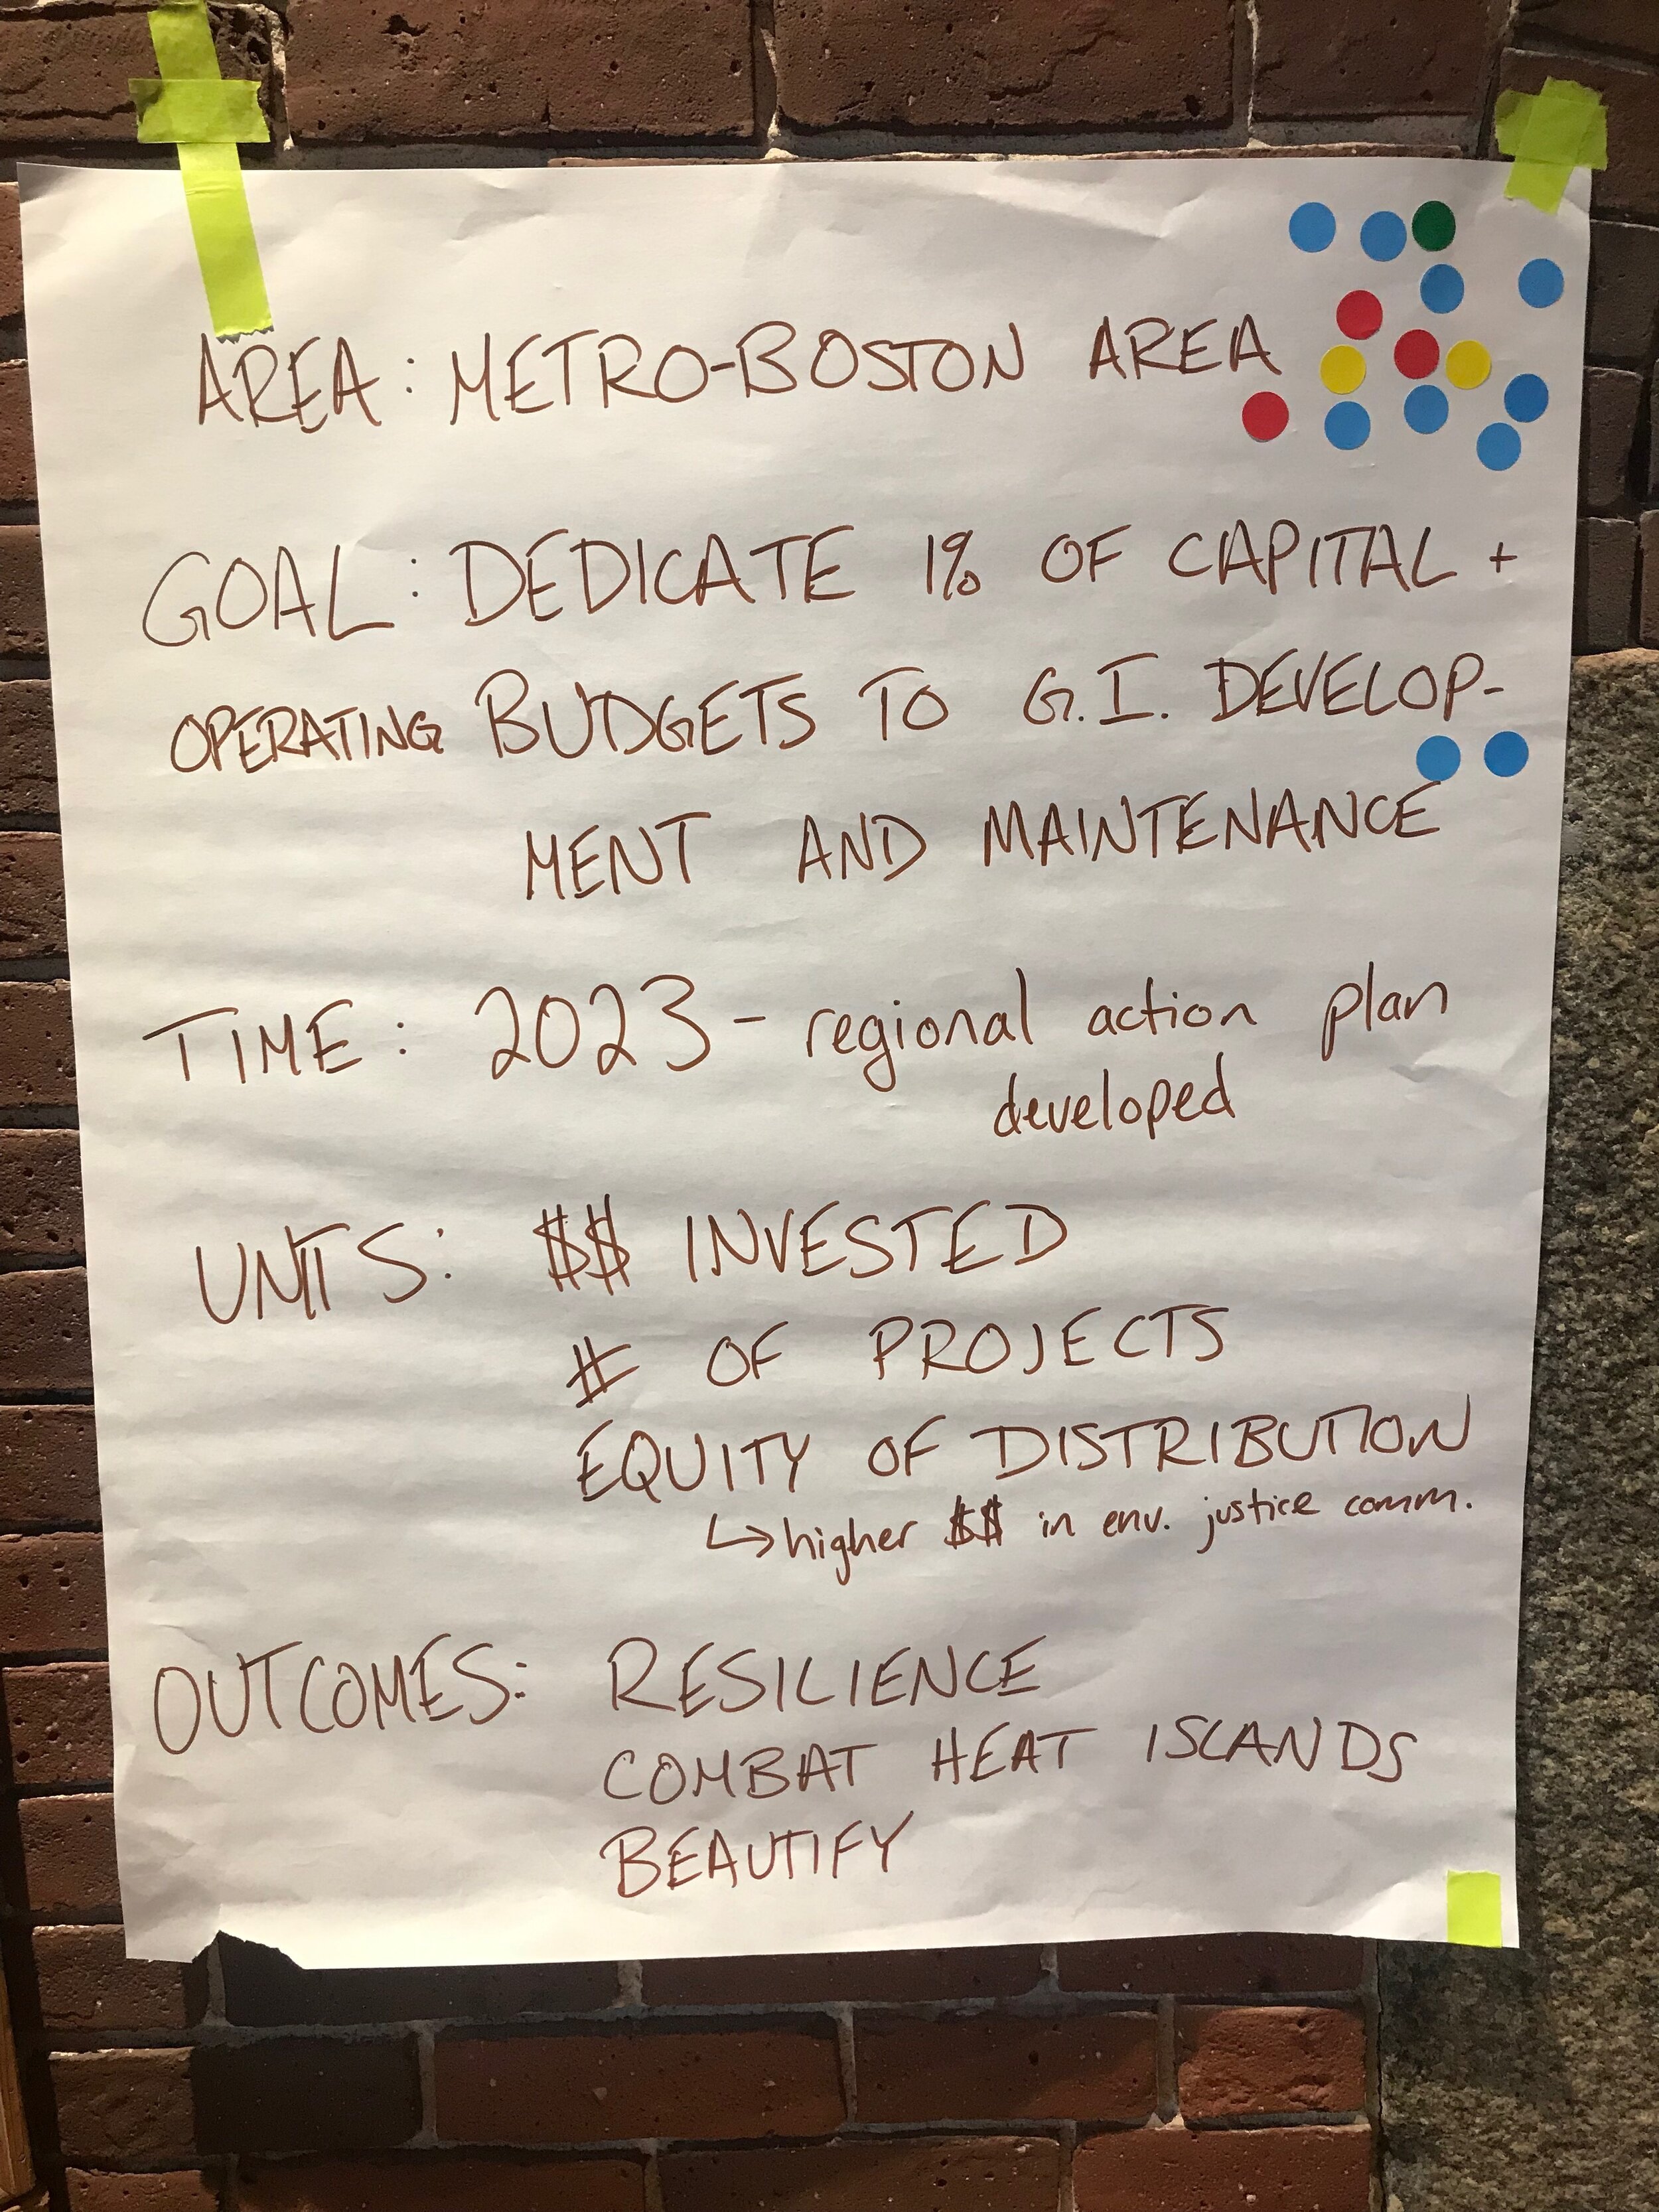 AREA: METRO-BOSTON AREA
GOAL: DEDICATE 1% OF CAPITAL +
OPERATING BUDGETS TO G.I. DEVELOP-
MENT AND MAINTENANCE
TIME: 2023 - regional action plan
developed
UNITS: $$ INVESTED
# OF PROJECTS
EQUITY OF DISTRIBUTION
↳ higher $$ in env. justice comm.
OUTCOMES: RESILIENCE
COMBAT HEAT ISLANDS
BEAUTIFY